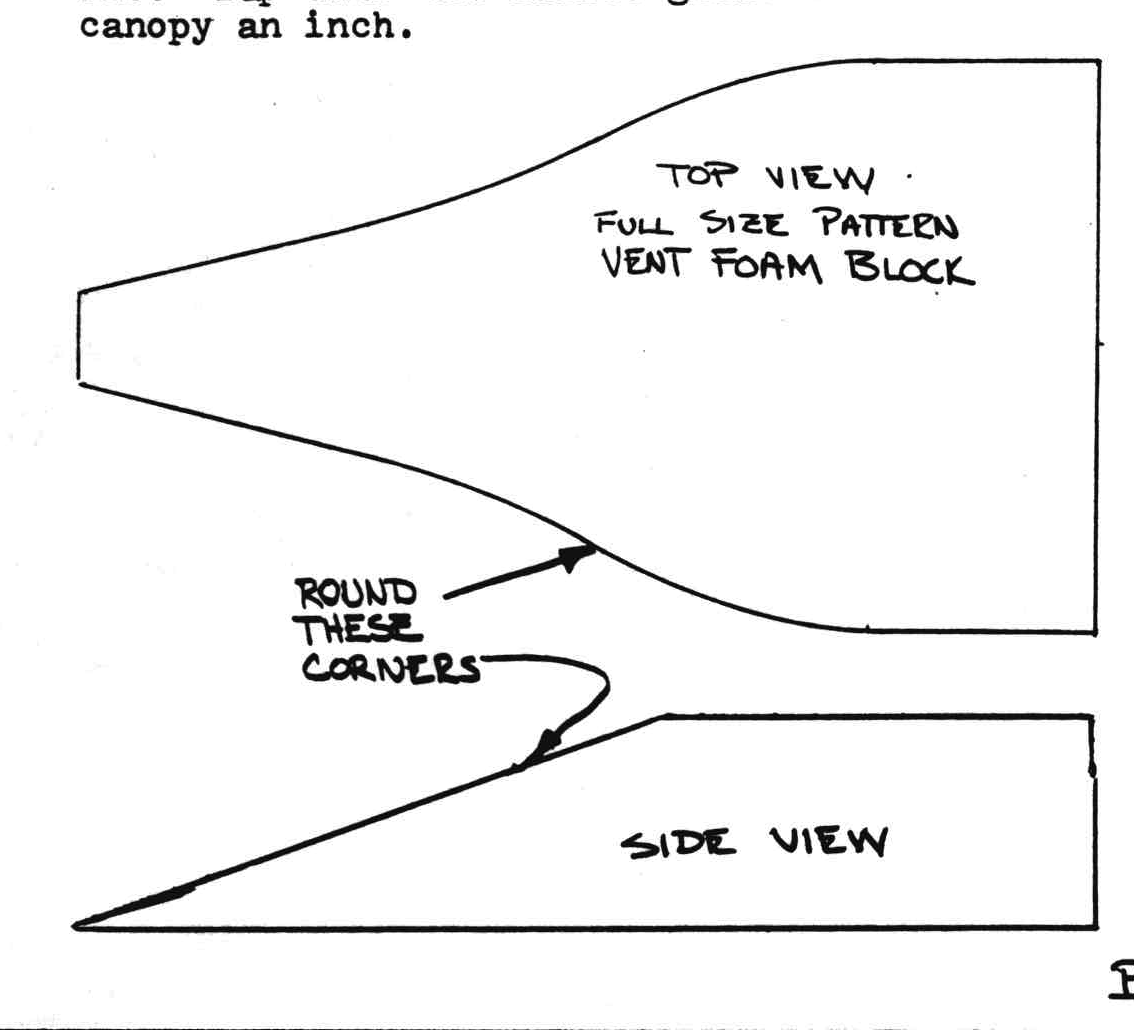 canopy an inch.
TOP VIEW
FULL SIZE PATTERN
VENT FOAM BLOCK
ROUND
THESE
CORNERS
SIDE VIEW